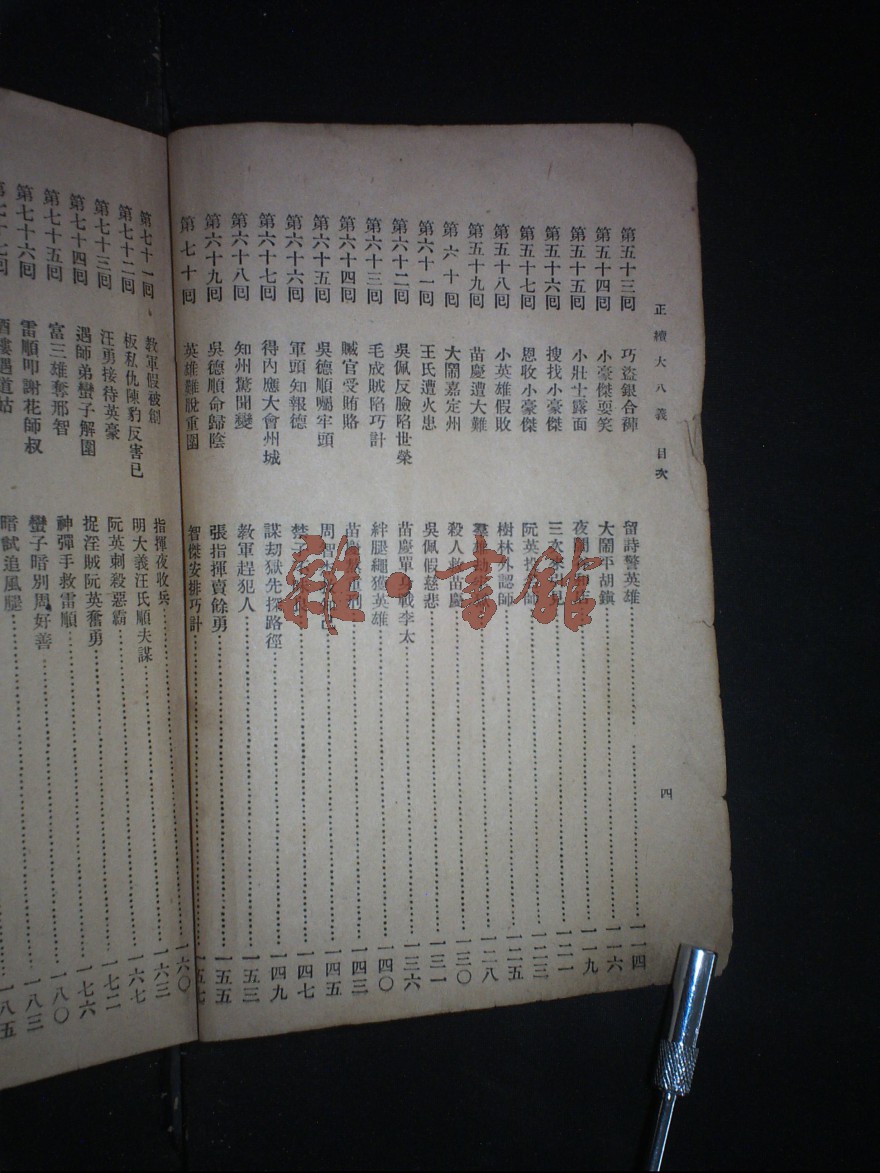 正續大八義 目次
四
第五十三囘 巧盜銀合褲 留詩警英雄 一一四
第五十四囘 小豪傑耍笑 大鬧平胡鎭 一一六
第五十五囘 小壯士露面 夜 一一九
第五十六囘 搜找小豪傑 三 一二一
第五十七囘 恩收小豪傑 阮英 師 一二三
第五十八囘 小英雄假敗 樹林外認師 一二五
第五十九囘 苗慶遭大難 一二八
第六十囘 大鬧嘉定州 殺人救苗慶 一三〇
第六十一囘 王氏遭火患 吳佩假慈悲 一三一
第六十二囘 吳佩反臉陷世榮 苗慶單 戰李太 一三六
第六十三囘 毛成賊陷巧計 絆腿繩獲英雄 一四〇
第六十四囘 贓官受賄賂 苗 一四三
第六十五囘 吳德順囑牢頭 周智 一四五
第六十六囘 軍頭知報德 禁子 一四七
第六十七囘 得內應大會州城 謀刧獄先探路徑 一四九
第六十八囘 知州驚聞變 敎軍趕犯人 一五三
第六十九囘 吳德順命歸陰 張指揮賣餘勇 一五五
第七十囘 英雄難脫重圍 智傑安排巧計 一五七
第七十一囘 敎軍假被創 指揮夜收兵 一六〇
第七十二囘 板私仇陳豹反害已 明大義汪氏順夫謀 一六三
第七十三囘 汪勇接待英豪 阮英刺殺惡霸 一六七
第七十四囘 遇師弟蠻子解圍 捉淫賊阮英奮勇 一七二
第七十五囘 富三雄奪邢智 神彈手救雷順 一七六
第七十六囘 雷順叩謝花師叔 蠻子暗別周好善 一八〇
第七十七囘 酒樓遇道姑 暗試追風腿 一八三
一八五
雜·書館